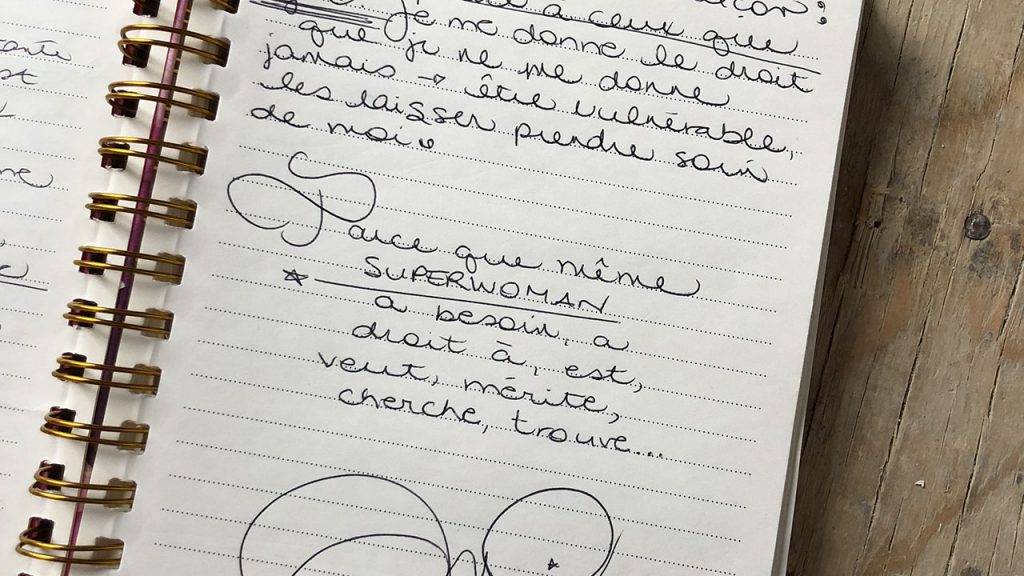 à ceux que
je me donne le droit
que je ne me donne
jamais → être vulnérable,
les laisser prendre soin
de moi.
Parce que même
* SUPERWOMAN
a besoin, a
droit à, est,
veut, mérite,
cherche, trouve...